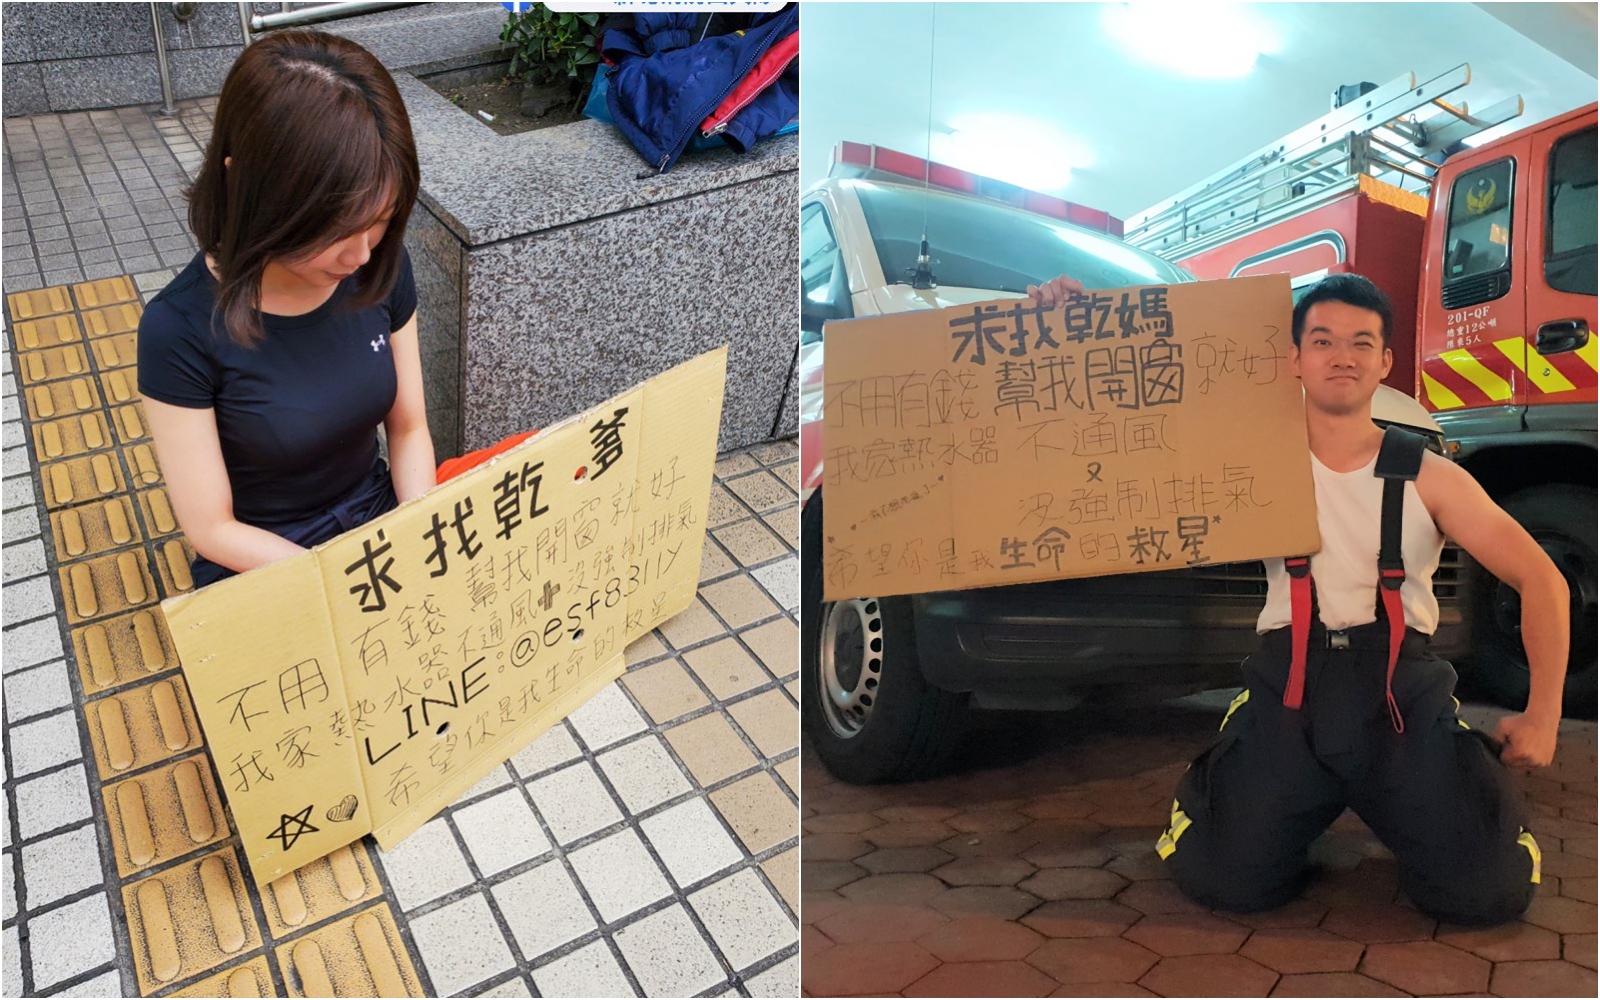 求找乾爹
不用有錢 幫我開窗就好
我家熱水器不通風+沒強制排氣
LINE:@esf8311y
希望你是我生命的救星
求找乾媽
不用有錢 幫我開窗 就好
我家熱水器 不通風
又
沒強制排氣
希望你是我生命的救星
201-QF
總重12公噸
限乘5人